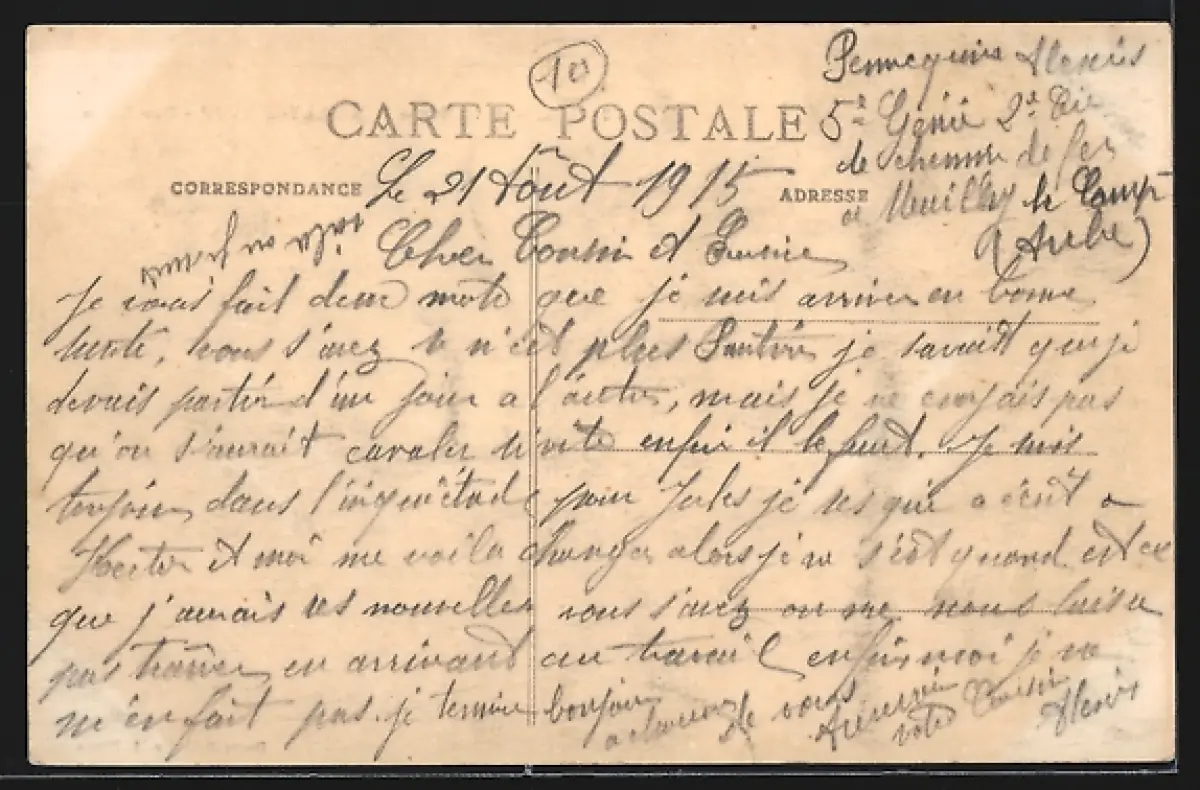 10
Pennequin Alexis
CARTE POSTALE
5e Génie 2e Cie
de chemin de fer
CORRESPONDANCE
Le 21 Août 1915
ADRESSE
a Mailly le Camp
(Aube)
voilà ou je suis
Cher Cousin et
Je vous fait deux mots que je suis arriver en bonne
santé, vous s'avez se n'est plus je savait que je
devais partir d'un jour a l'autre, mais je ne croyais pas
qu'on s'aurait cavaler si vite enfin il le faut. Je suis
toujour dans l'inquiétude pour Jules je ses que a écrit a
Hector et moi me voila changer alors je ne s'est quand est ce
que j'aurais ses nouvelles vous s'avez on me nous laisse
pas trainer en arrivant au travail enfin moi je ne
m'en fait pas. je termine bonjour
de vous
votre Cousin
Alexis